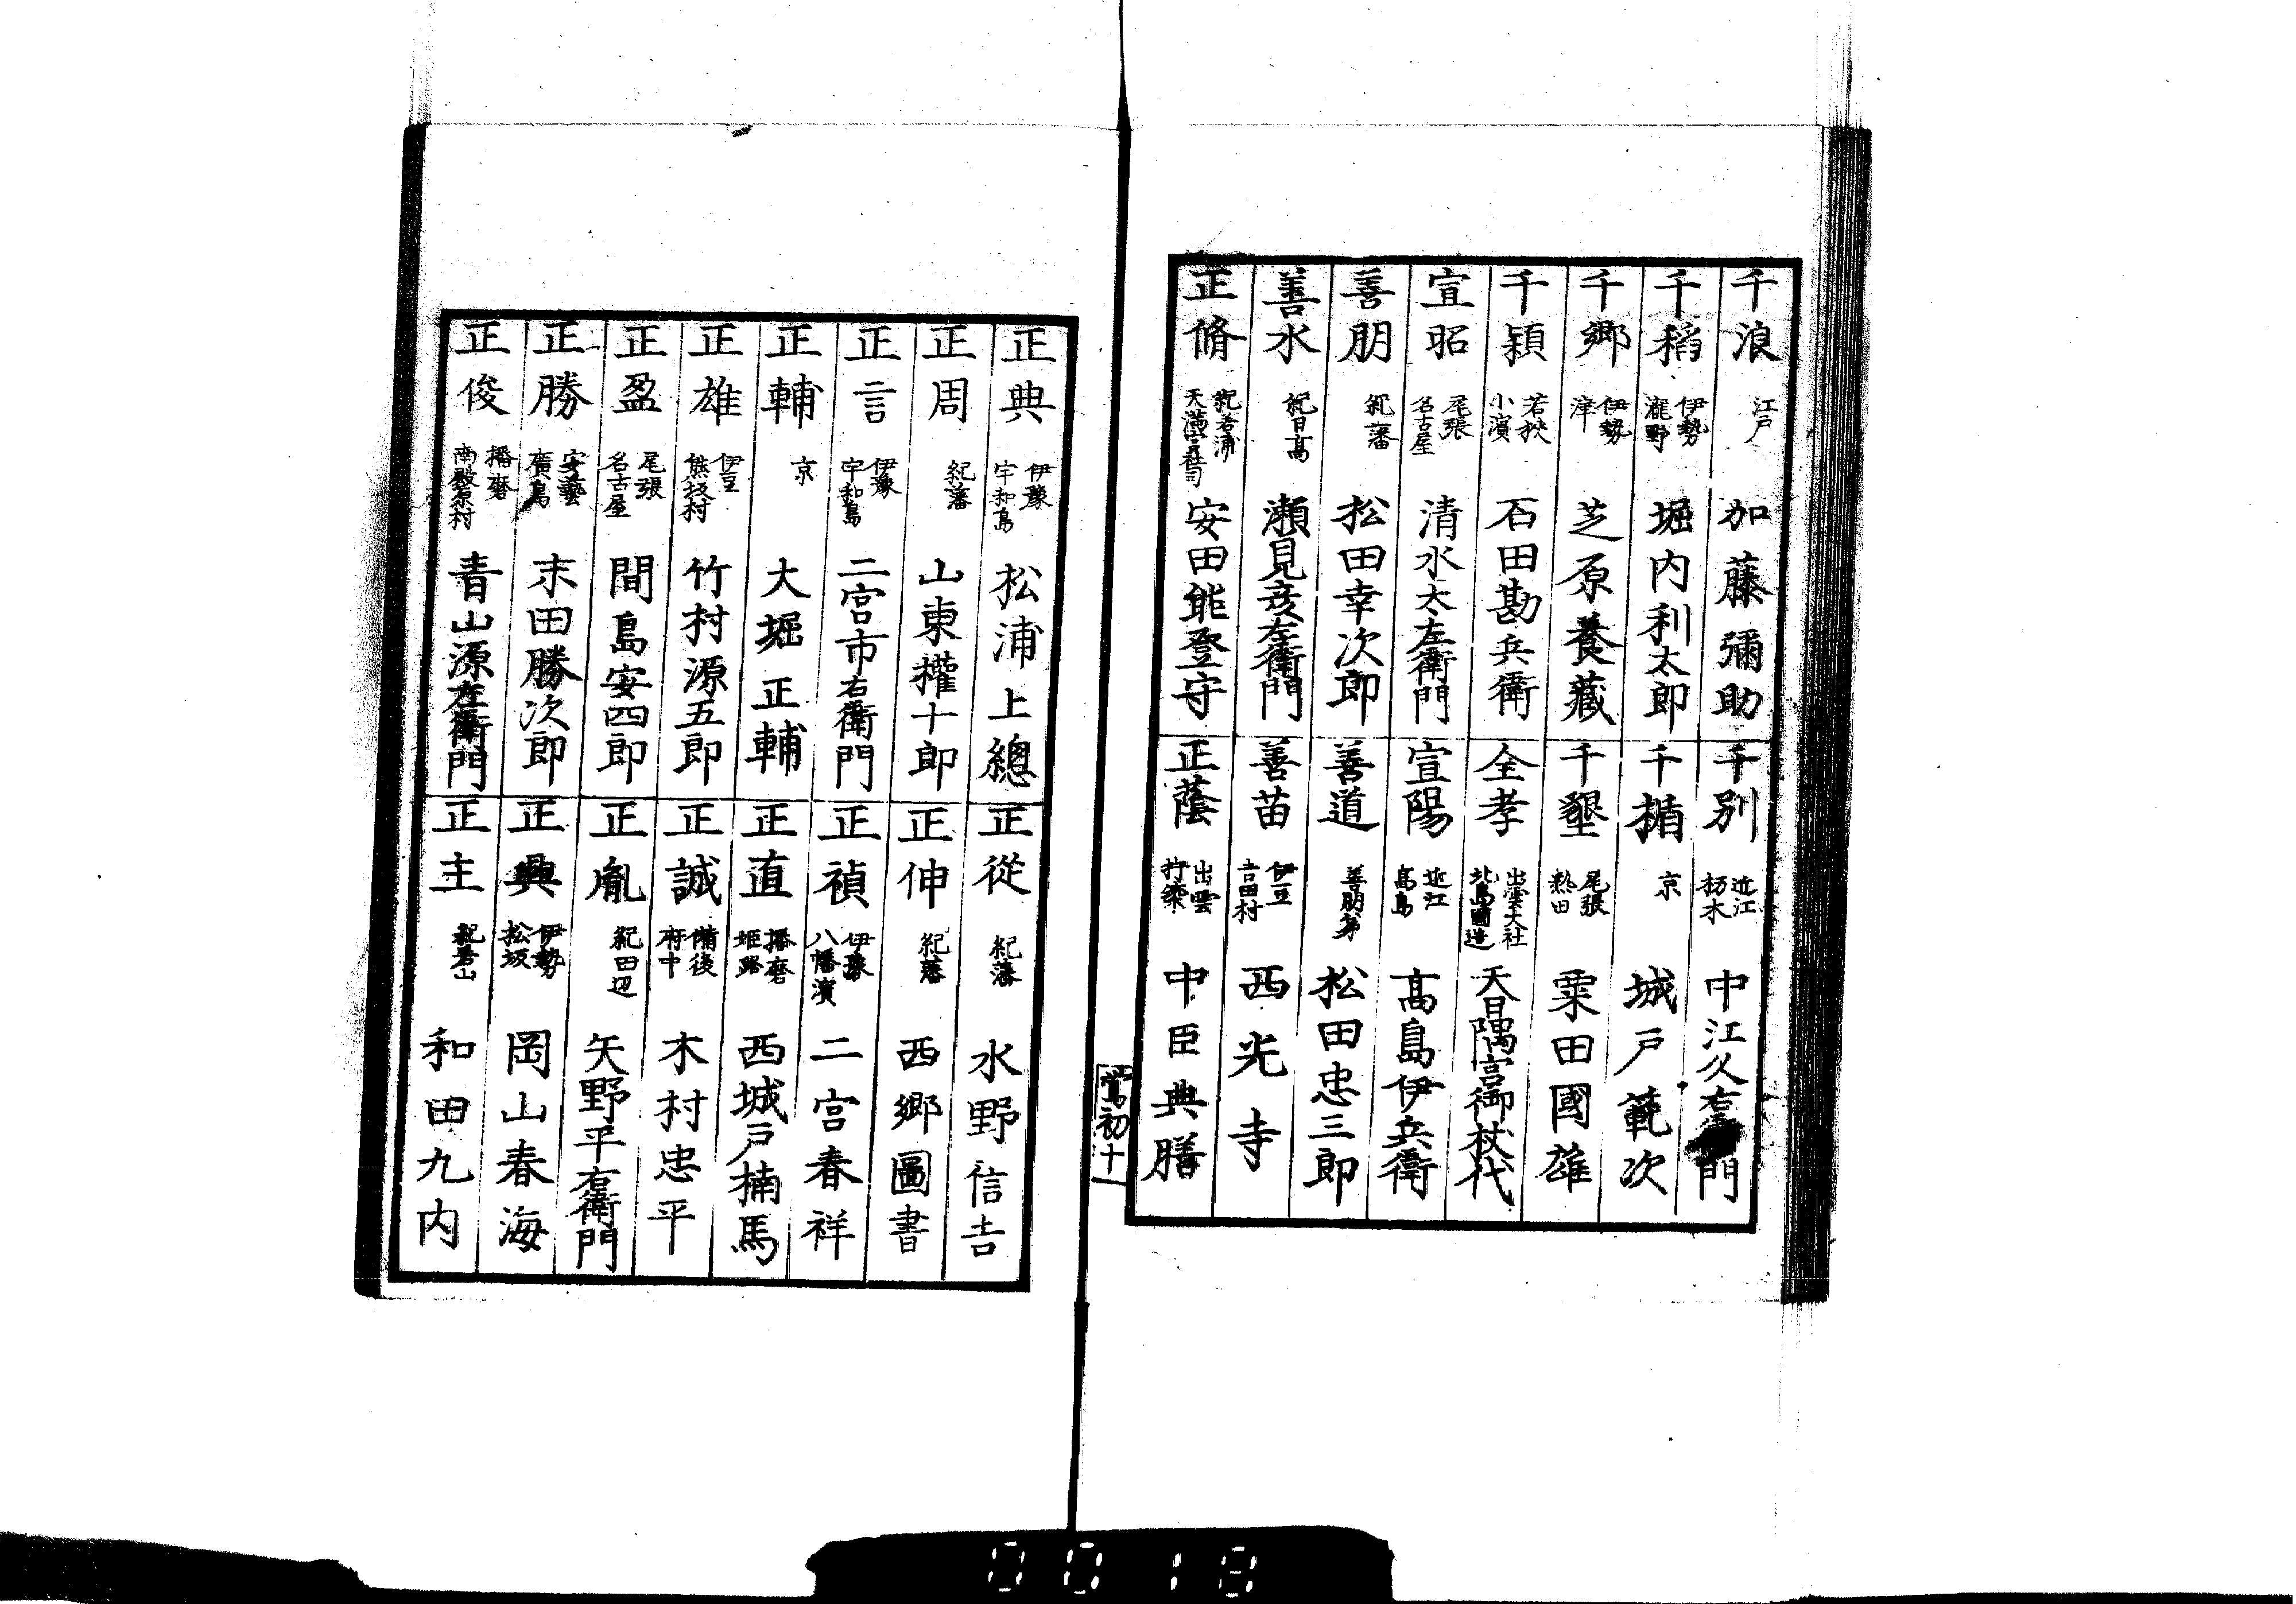 千浪 江戸 加藤彌助
千稻 伊勢瀧野 堀内利太郎
千郷 伊勢津 芝原養藏
千穎 若狹小濱 石田勘兵衛
宣昭 尾張名古屋 清水太左衛門
善朋 紀藩 松田幸次郎
善水 紀日高 瀬見彦左衛門
正脩 紀若浦天満宮社司 安田能登守
千別 近江朽木 中江久右衛門
千楯 京 城戸範次
千墾 尾張熱田 粟田國雄
全孝 出雲大社北島國造 天日隅宮御杖代
宣陽 近江高島 高島伊兵衛
善道 善朋弟 松田忠三郎
善苗 伊豆吉田村 西光寺
正蔭 出雲杵築 中臣典膳
鴬初 十一
正典 伊豫宇和島 松浦上總
正周 紀藩 山東權十郎
正言 伊豫宇和島 二宮市右衛門
正輔 京 大堀正輔
正雄 伊豆熊坂村 竹村源五郎
正盈 尾張名古屋 間島安四郎
正勝 安藝廣島 末田勝次郎
正俊 播磨南殿原村 青山源左衛門
正從 紀藩 水野信吉
正伸 紀藩 西郷圖書
正禎 伊豫八幡濱 二宮春祥
正直 播磨姫路 西城戸楠馬
正誠 備後府中 木村忠平
正胤 紀田辺 矢野平右衛門
正興 伊勢松坂 岡山春海
正主 紀若山 和田九内
0018